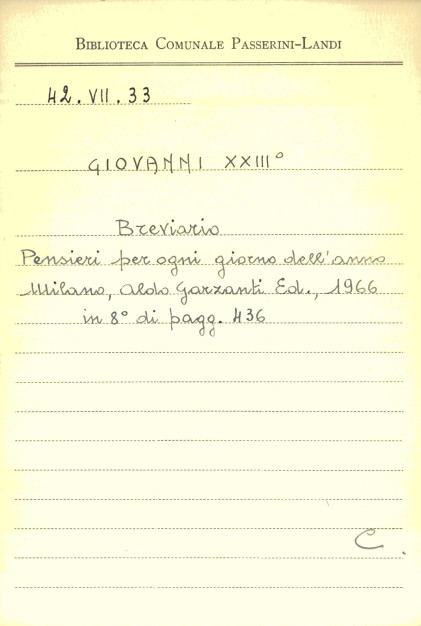 Biblioteca Comunale Passerini-Landi
42.VII.33
GIOVANNI XXIII°
Breviario
Pensieri per ogni giorno dell'anno
Milano, Aldo Garzanti Ed., 1966
in 8° di pagg. 436
C.